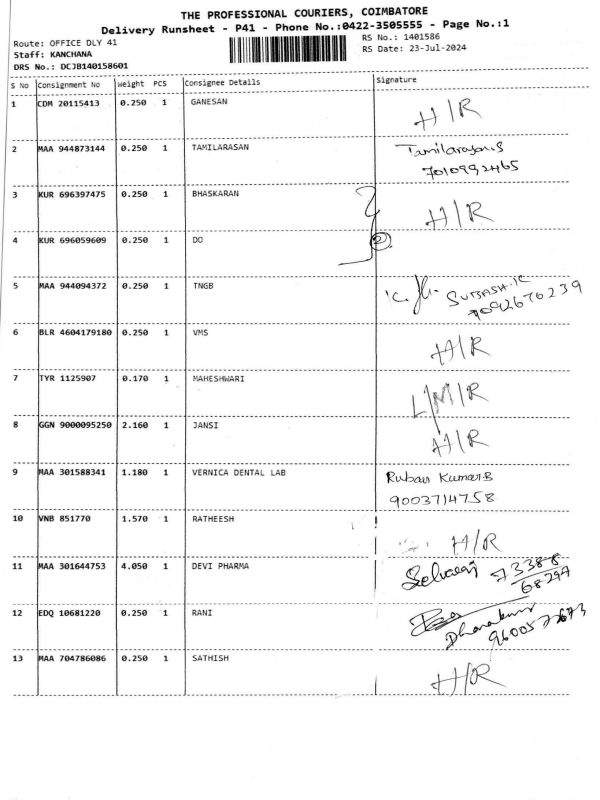 THE PROFESSIONAL COURIERS, COIMBATORE
Delivery Runsheet - P41 - Phone No.:0422-3505555 - Page No.:1
Route: OFFICE DLY 41
RS No.: 1401586
Staff: KANCHANA
RS Date: 23-Jul-2024
DRS No.: DCJB140158601
S No Consignment No Weight PCS Consignee Details Signature
1 CDM 20115413 0.250 1 GANESAN H/R
2 MAA 944873144 0.250 1 TAMILARASAN Tamilarasan.S
7010992465
3 KUR 696397475 0.250 1 BHASKARAN H/R
4 KUR 696059609 0.250 1 DO 2
5 MAA 944094372 0.250 1 TNGB SUBASH.K
7092676239
6 BLR 4604179180 0.250 1 VMS H/R
7 TYR 1125907 0.170 1 MAHESHWARI L/M/R
8 GGN 9000095250 2.160 1 JANSI H/R
9 MAA 301588341 1.180 1 VERNICA DENTAL LAB Ruban Kumar B
9003714758
10 VNB 851770 1.570 1 RATHEESH H/R
11 MAA 301644753 4.050 1 DEVI PHARMA Selvaraj 73388
68297
12 EDQ 10681220 0.250 1 RANI
13 MAA 704786086 0.250 1 SATHISH H/R